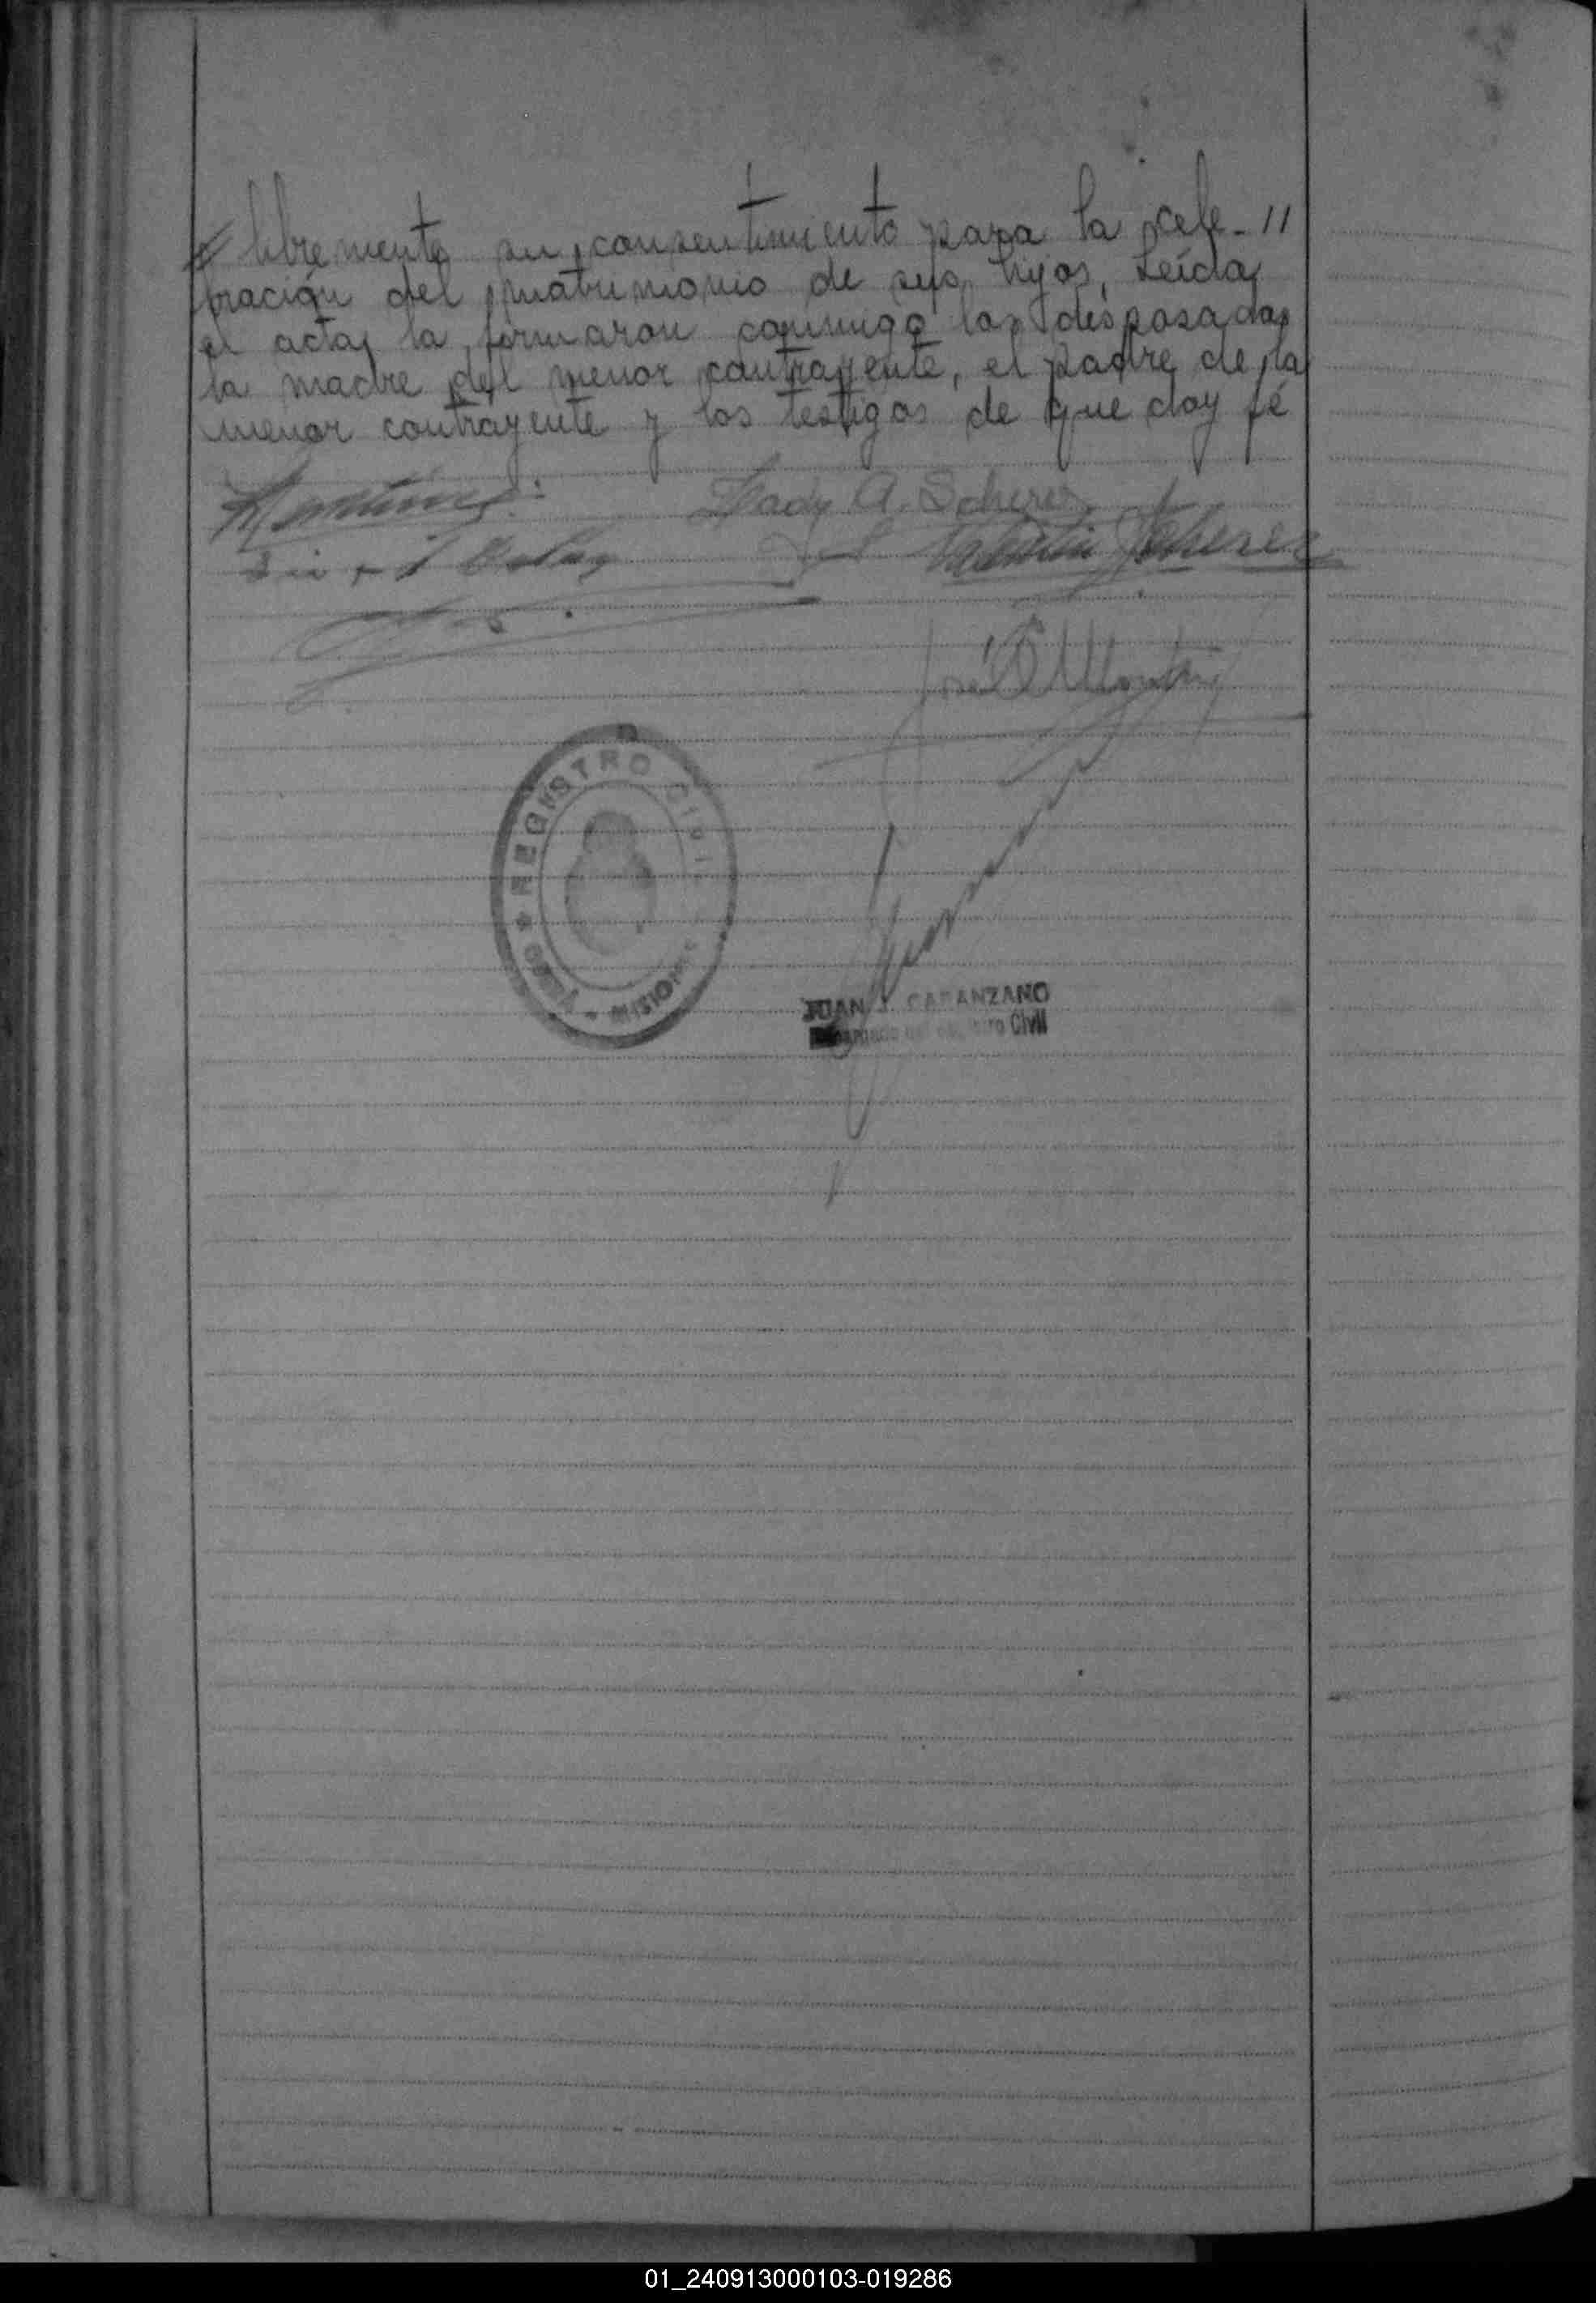 // libremente su consentimiento para la cele- //
bración del matrimonio de sus hijos, Leída
el acta, la firmaron conmigo los desposados
la madre del menor contrayente, el padre de la
menor contrayente y los testigos de que doy fé
Lady A. Scherer
Valentin Scherer
José
REGISTRO CIVIL
OBERÁ MISIONES
JUAN J. CATANZANO
Civil
01_240913000103-019286